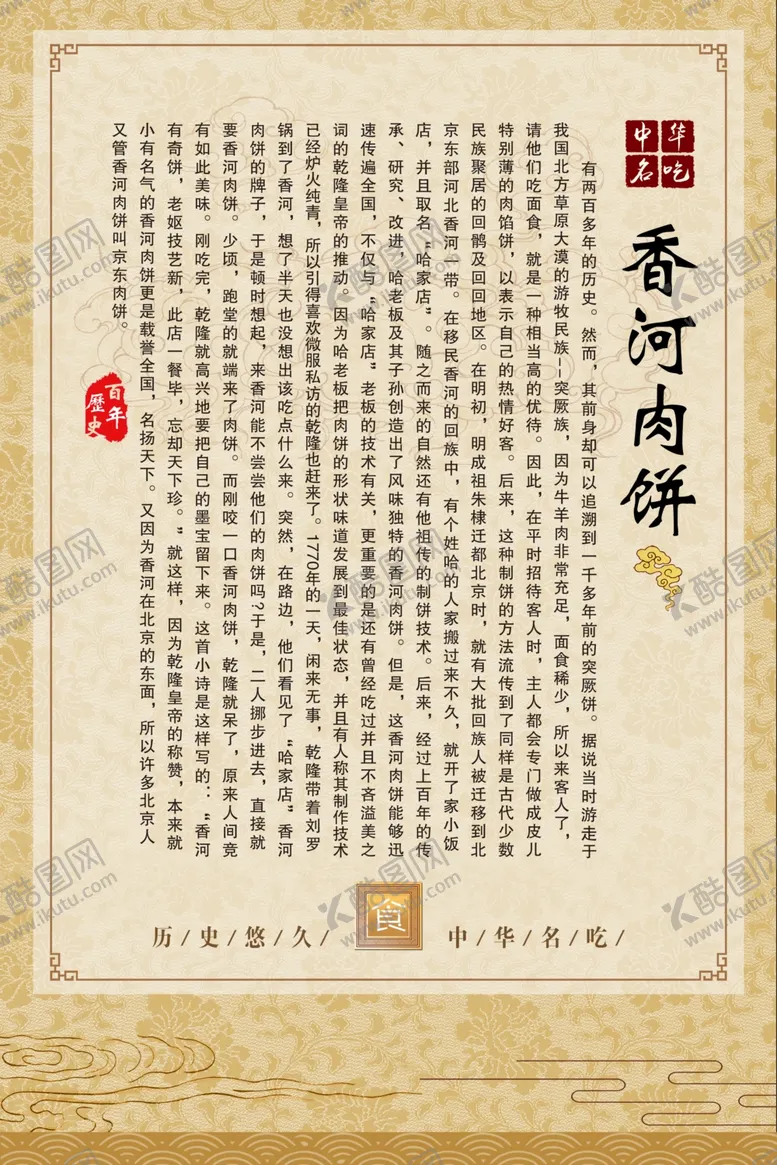 中华
名吃
香河肉饼
有两百多年的历史。然而，其前身却可以追溯到一千多年前的突厥饼。据说当时游走于
我国北方草原大漠的游牧民族—突厥族，因为牛羊肉非常充足，面食稀少，所以来客人了，
请他们吃面食，就是一种相当高的优待。因此，在平时招待客人时，主人都会专门做成皮儿
特别薄的肉馅饼，以表示自己的热情好客。后来，这种制饼的方法流传到了同样是古代少数
民族聚居的回鹘及回回地区。在明初，明成祖朱棣迁都北京时，就有大批回族人被迁移到北
京东部河北香河一带。在移民香河的回族中，有个姓哈的人家搬过来不久，就开了家小饭
店，并且取名“哈家店”。随之而来的自然还有他祖传的制饼技术。后来，经过上百年的传
承、研究、改进，哈老板及其子孙创造出了风味独特的香河肉饼。但是，这香河肉饼能够迅
速传遍全国，不仅与“哈家店”老板的技术有关，更重要的是还有曾经吃过并且不吝溢美之
词的乾隆皇帝的推动。因为哈老板把肉饼的形状味道发展到最佳状态，并且有人称其制作技术
已经炉火纯青，所以引得喜欢微服私访的乾隆也赶来了。1770年的一天，闲来无事，乾隆带着刘罗
锅到了香河，想了半天也没想出该吃点什么来。突然，在路边，他们看见了“哈家店”香河
肉饼的牌子，于是顿时想起，来香河能不尝尝他们的肉饼吗?于是，二人挪步进去，直接就
要香河肉饼。少顷，跑堂的就端来了肉饼。而刚咬一口香河肉饼，乾隆就呆了，原来人间竞
有如此美味。刚吃完，乾隆就高兴地要把自己的墨宝留下来。这首小诗是这样写的：“香河
有奇饼，老妪技艺新，此店一餐毕，忘却天下珍。”就这样，因为乾隆皇帝的称赞，本来就
小有名气的香河肉饼更是载誉全国，名扬天下。又因为香河在北京的东面，所以许多北京人
又管香河肉饼叫京东肉饼。
百年
歷史
历/史/悠/久/
食
中/华/名/吃/
酷图网
www.ikutu.com